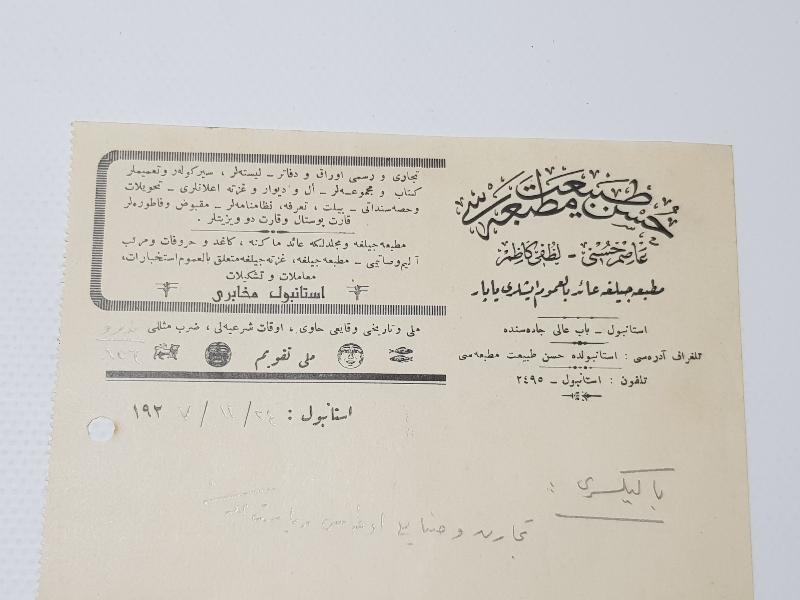 حسن طبیعت مطبعه‌سی
عاصم حسنی - لطفی کاظم
مطبعه‌جیلغه عائد بالعموم ایشلری یاپار
استانبول - باب عالی جاده‌سنده
تلغراف آدره‌سی : استانبولده حسن طبیعت مطبعه‌سی
تلفون : استانبول - ٢٤٩٥
تجاری و رسمی اوراق و دفاتر - لیسته‌لر ، سیرکولر وتعمیملر
کتاب و مجموعه‌لر - أل و دیوار و غزته اعلانلری - تحویلات
وحصه‌سنداتی - بیلت ، تعرفه ، نظامنامه‌لر - مقبوض وفاطوره‌لر
قارت پوستال وقارت دو ویزیتلر .
مطبعه‌جیلغه ومجلدلکه عائد ماکنه ، کاغد و حروفات ومرکب
آلیم وصاتیمی - مطبعه‌جیلغه ، غزته‌جیلغه متعلق بالعموم استخبارات ،
معاملات و تشکیلات
استانبول مخابری
ملی وتاریخی وقایعی حاوی ، اوقات شرعیه‌لی ، ضرب مثللی
ملی تقویم
استانبول : ٢٤ / ١٢ / ١٩٢٧
بالیکسری :
تجارت و صنایع